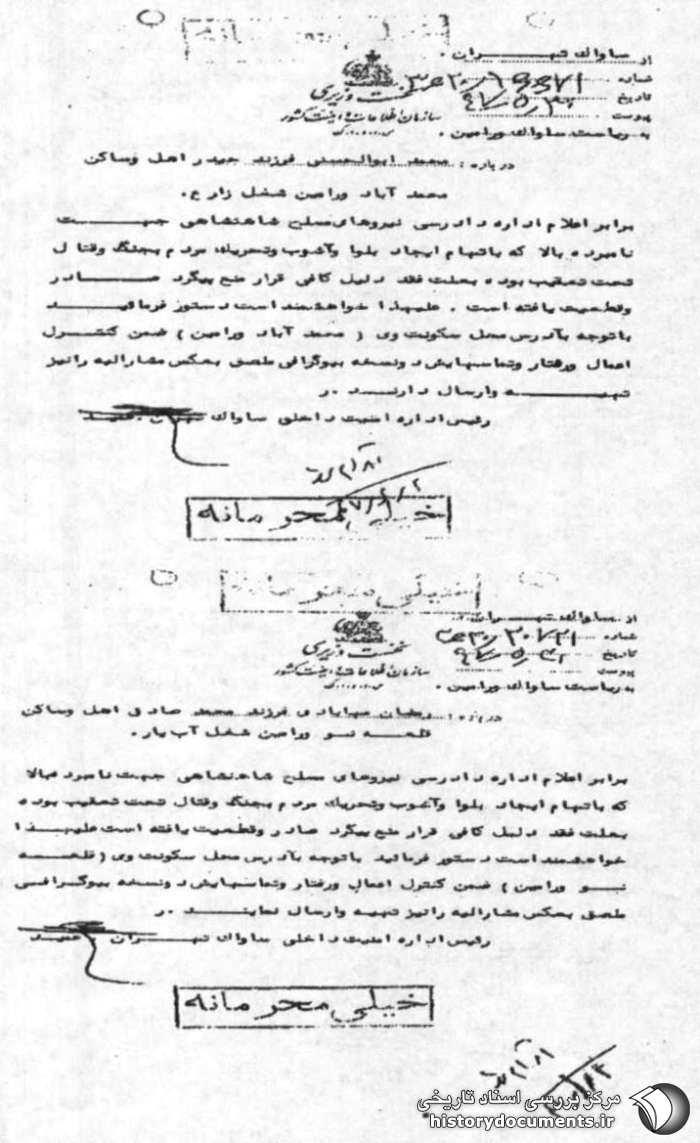 از ساواک تهـــران
شماره
تاریخ
پیوست
به ریاست ساواک ورامین .
نخست وزیری
سازمان اطلاعات و امنیت کشور
س.....ا.....ک
درباره : محمد ابوالحسنی فرزند حیدر اهل وساکن
محمد آباد ورامین شغل زارع.
برابر اعلام اداره دادرسی نیروهای مسلح شاهنشاهی جهــت
نامبرده بالا که باتهام ایجاد بلوا وآشوب وتحریک مردم بجنگ وقتال
تحت تعقیب بوده بعلت فقد دلیل کافی قرار منع پیگرد صــادر
وقطعیت یافته است . علیهذا خواهشمند است دستور فرمائیــد
باتوجه بآدرس محل سکونت وی ( محمد آباد ورامین ) ضمن کنتــرل
اعمال ورفتار وتماسهایش دونسخه بیوگرافی ملصق بعکس مشارالیه رانیز
تهیــه وارسال دارنــد .ر
رئیس اداره امنیت داخلی ساواک تهران
خیلی محرمانه
خیلی محرمانه
از ساواک تهــران
شماره
تاریخ
پیوست
به ریاست ساواک ورامین .
نخست وزیری
سازمان اطلاعات و امنیت کشور
س.....ا.....ک
درباره : فرزند محمد صادق اهل وساکن
قلعــه نــو ورامین شغل آب یار .
برابر اعلام اداره دادرسی نیروهای مسلح شاهنشاهی جهت نامبرده بالا
که باتهام ایجاد بلوا وآشوب وتحریک مردم بجنگ وقتال تحت تعقیب بوده
بعلت فقد دلیل کافی قرار منع پیگرد صادر وقطعیت یافته است علیهــذا
خواهشمند است دستور فرمائید باتوجه بآدرس محل سکونت وی ( قلعــه
نــو ورامین ) ضمن کنترل اعمال ورفتار وتماسهایش دونسخه بیوگــرافــی
ملصق بعکس مشارالیه رانیز تهیه وارسال نماینــد .ر
رئیس اداره امنیت داخلی ساواک تهــران
خیلی محرمانه
مرکز بررسی اسناد تاریخی
historydocuments.ir